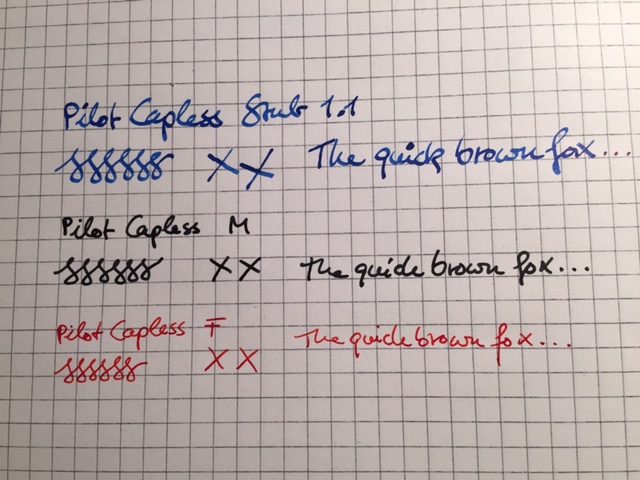 Pilot Capless Stub 1.1
ssssss XX The quick brown fox...
Pilot Capless M
ssssss XX The quick brown fox...
Pilot Capless F
ssssss XX The quick brown fox...